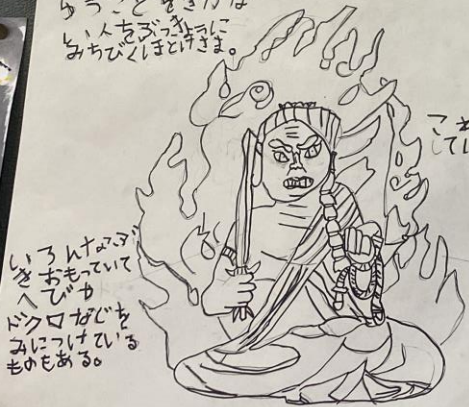 ゆうことをきかな
い人をぶっきょうに
みちびくほとけさま。
こわ
してい
いろんなぶ
きおもっていて
へびや
ドクロなじを
みにつけている
ものもある。